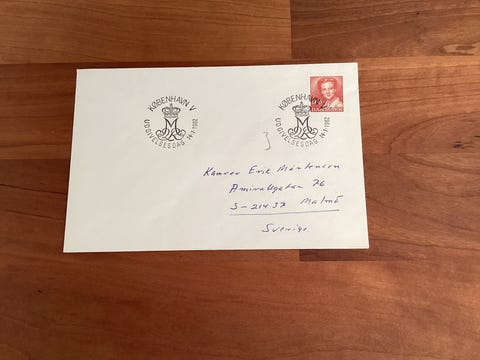 KØBENHAVN V
UDGIVELSESDAG 14-1-1982
KØBENHAVN V
UDGIVELSESDAG 14-1-1982
Erik Mårtensson
Amiralsgatan 76
S-214 37 Malmö
Sverige